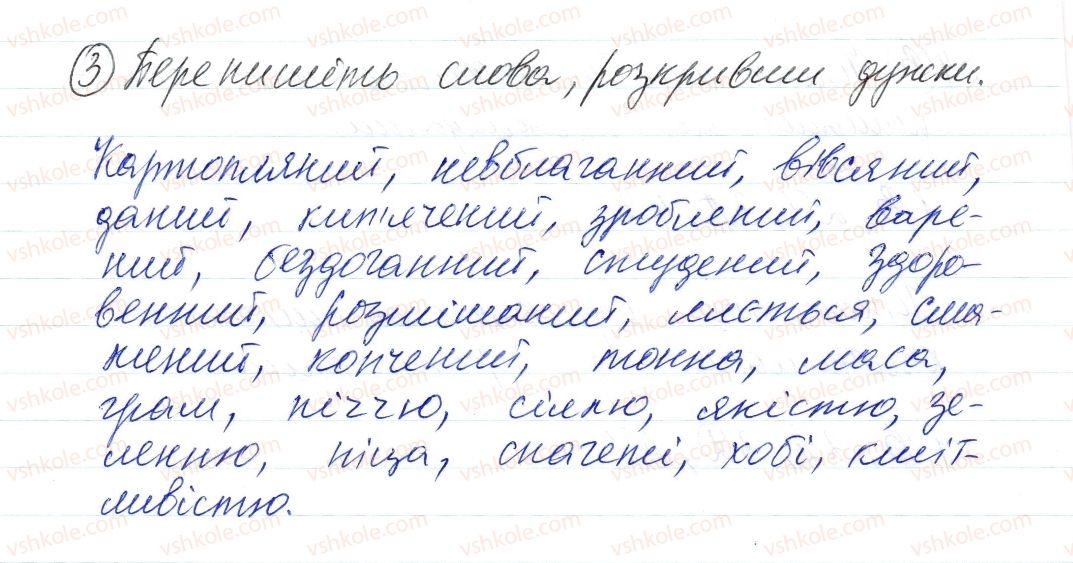 ③ Перепишіть слова, розкривши дужки.
Картопляний, невблаганний, вівсяний,
даний, кип'ячений, зроблений, варе-
ний, бездоганний, студений, здоро-
венний, розмішаний, ллється, сма-
жений, копчений, тонна, маса,
грам, піччю, сіллю, якістю, зе-
ленню, піца, спагеті, хобі, кміт-
ливістю.